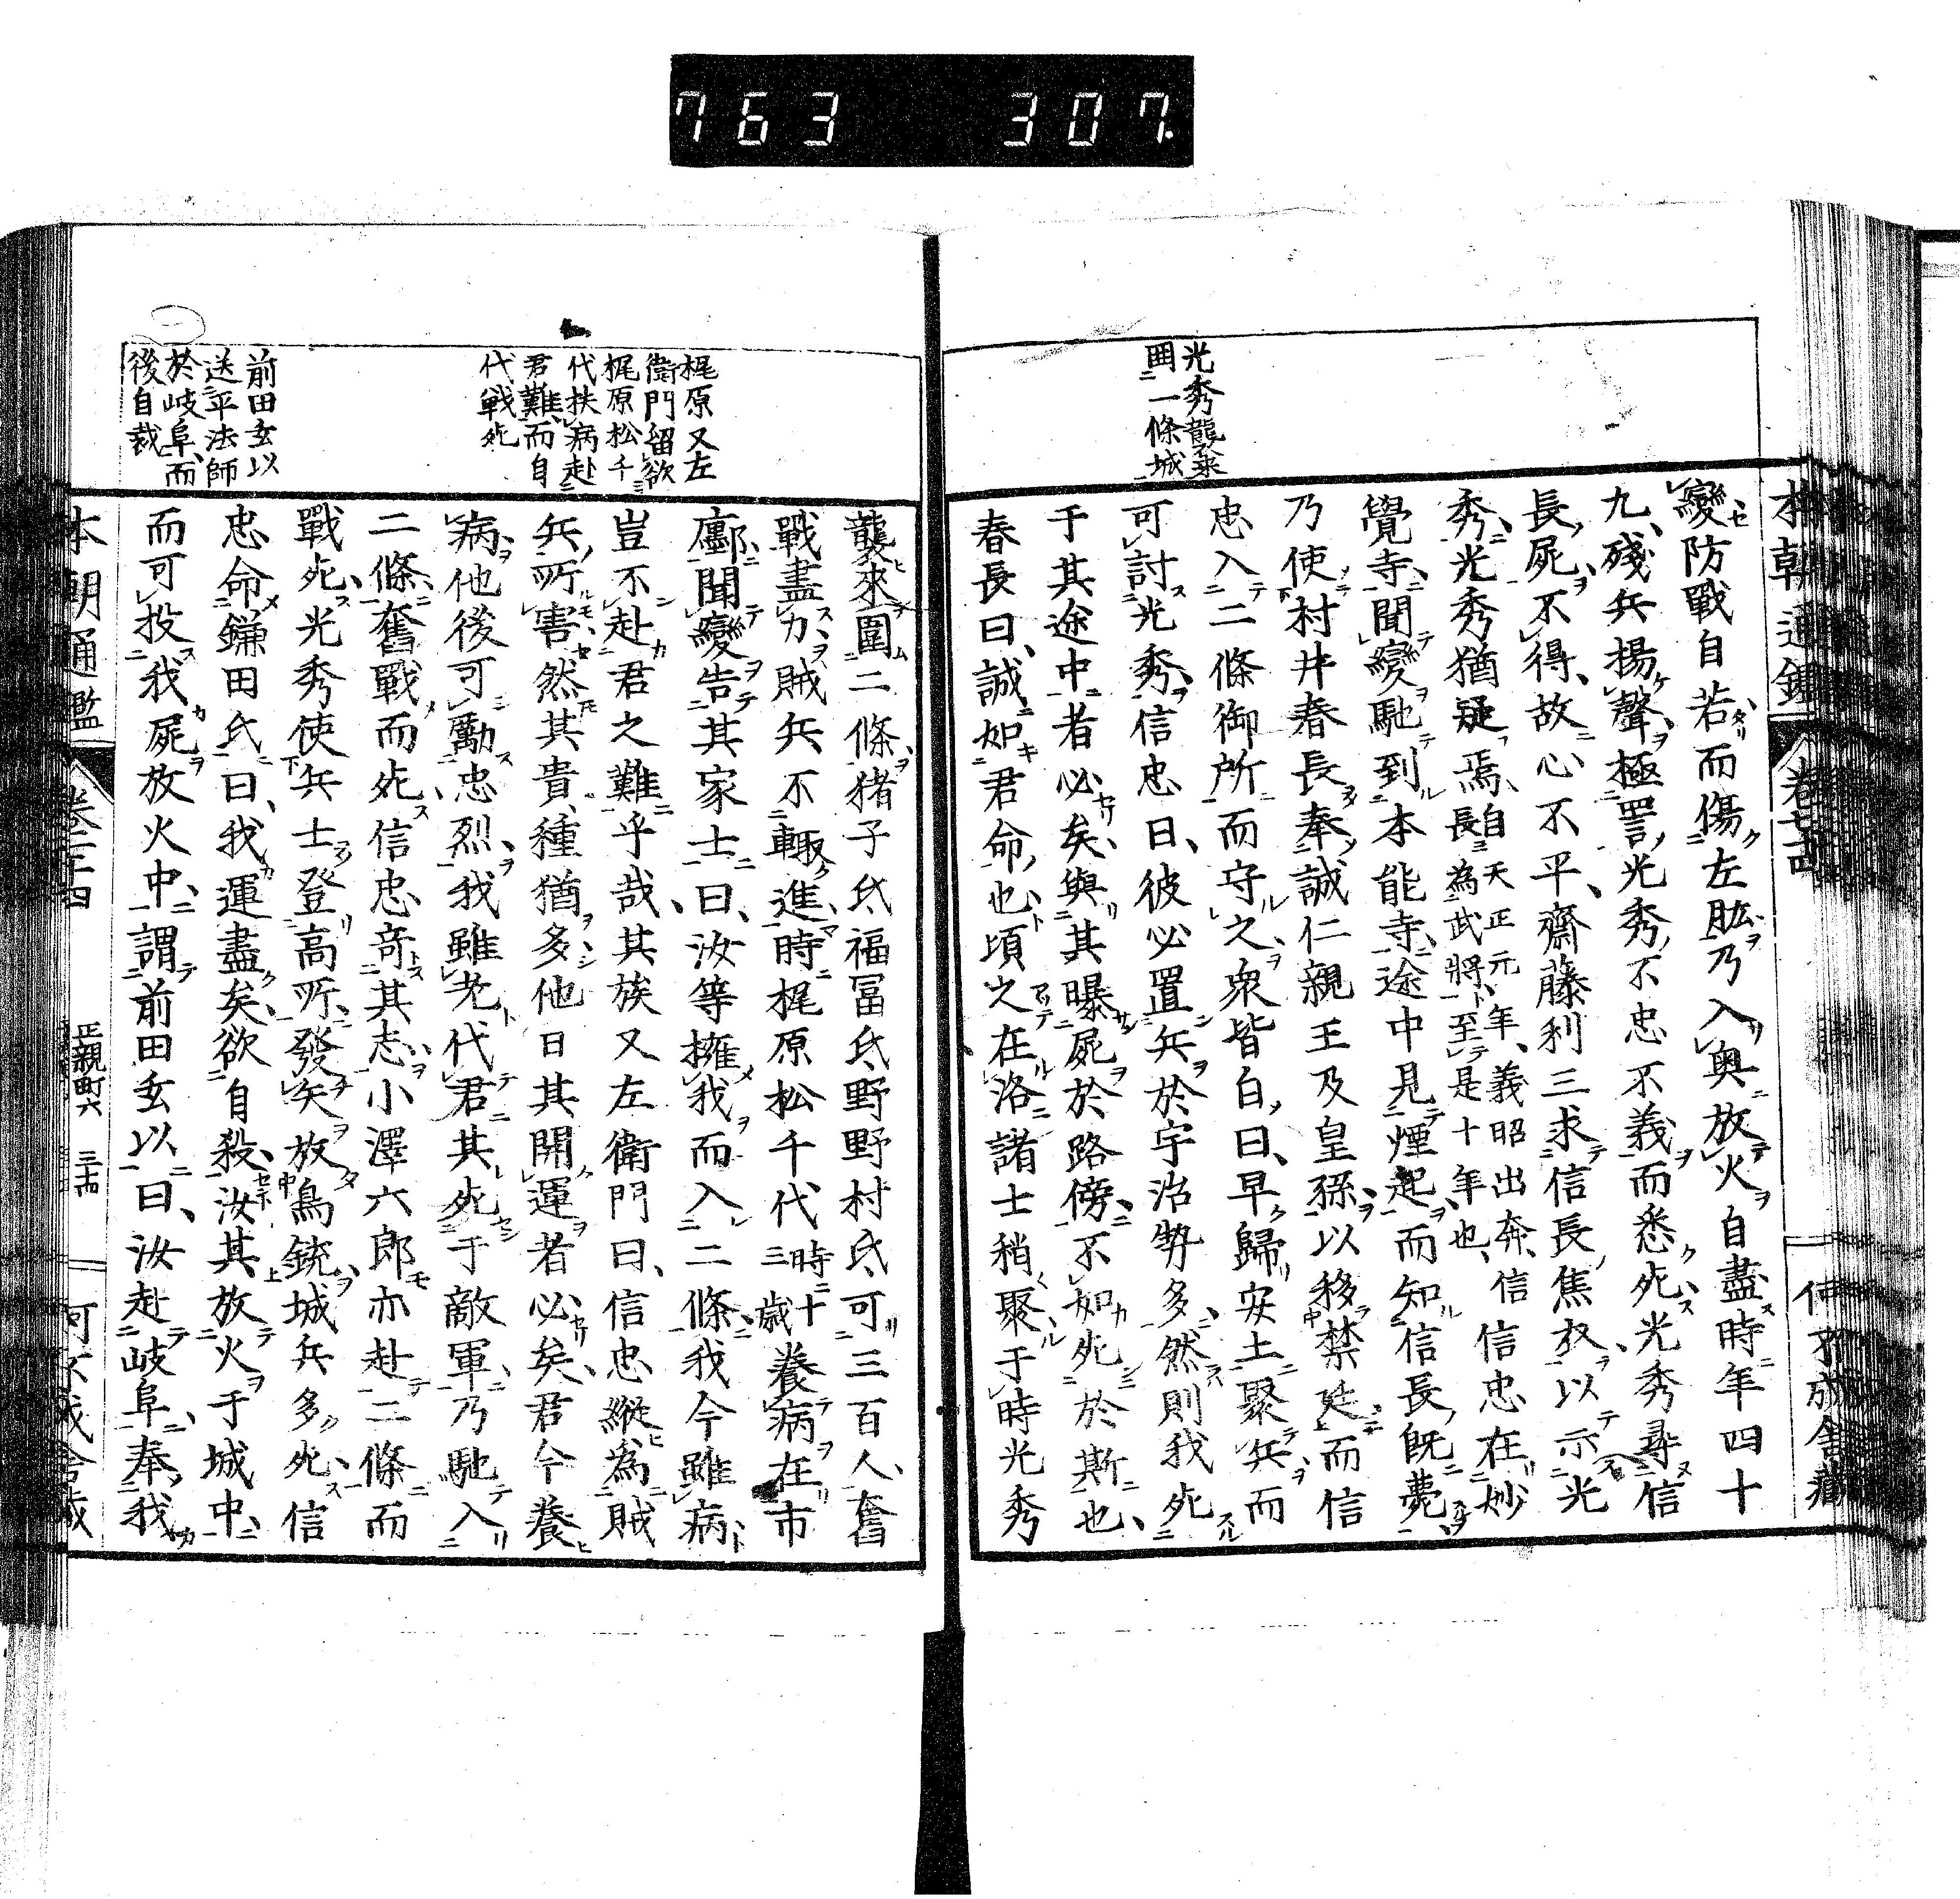 763 307.
本朝通鑑 卷七十四
何不成舍藏
光秀襲來
囲二一條城一
變防戰自若而傷左肱乃入奥放火自盡時年四十
九殘兵揚聲極詈光秀不忠不義而悉死光秀尋信
長屍不得故心不平齋藤利三求信長焦衣以示光
秀光秀猶疑焉自天正元年義昭出奔信長為武將至是十年也信忠在妙
覺寺聞變馳到本能寺途中見煙起而知信長既薨
乃使村井春長奉誠仁親王及皇孫以移禁廷而信
忠入二條御所而守之衆皆白曰早歸安土聚兵而
可討光秀信忠曰彼必置兵於宇治勢多然則我死
于其途中者必矣與其曝屍於路傍不如死於斯也
春長曰誠如君命也頃之在洛諸士稍聚于時光秀
梶原又左
衛門留欲
梶原松千
代扶病赴
君難而自
代戰死
前田玄以
送平法師
於岐阜而
後自裁
襲來圍二條猪子氏福冨氏野野村氏可三百人奮
戰盡力賊兵不輙進時梶原松千代時十三歳養病在市
鄽聞變告其家士曰汝等擁我而入二條我今雖病
豈不赴君之難乎哉其族又左衛門曰信忠縱為賊
兵所害然其貴種猶多他日其開運者必矣君今養
病他後可勵忠烈我雖老代君其死于敵軍乃馳入
二條奮戰而死信忠奇其志小澤六郎亦赴二條而
戰死光秀使兵士登高所發矢放鳥銃城兵多死信
忠命鎌田氏曰我運盡矣欲自殺汝其放火于城中
而可投我屍放火中謂前田玄以曰汝赴岐阜奉我
本朝通鑑 卷七十四 正親町六 三十四
何不成舍藏